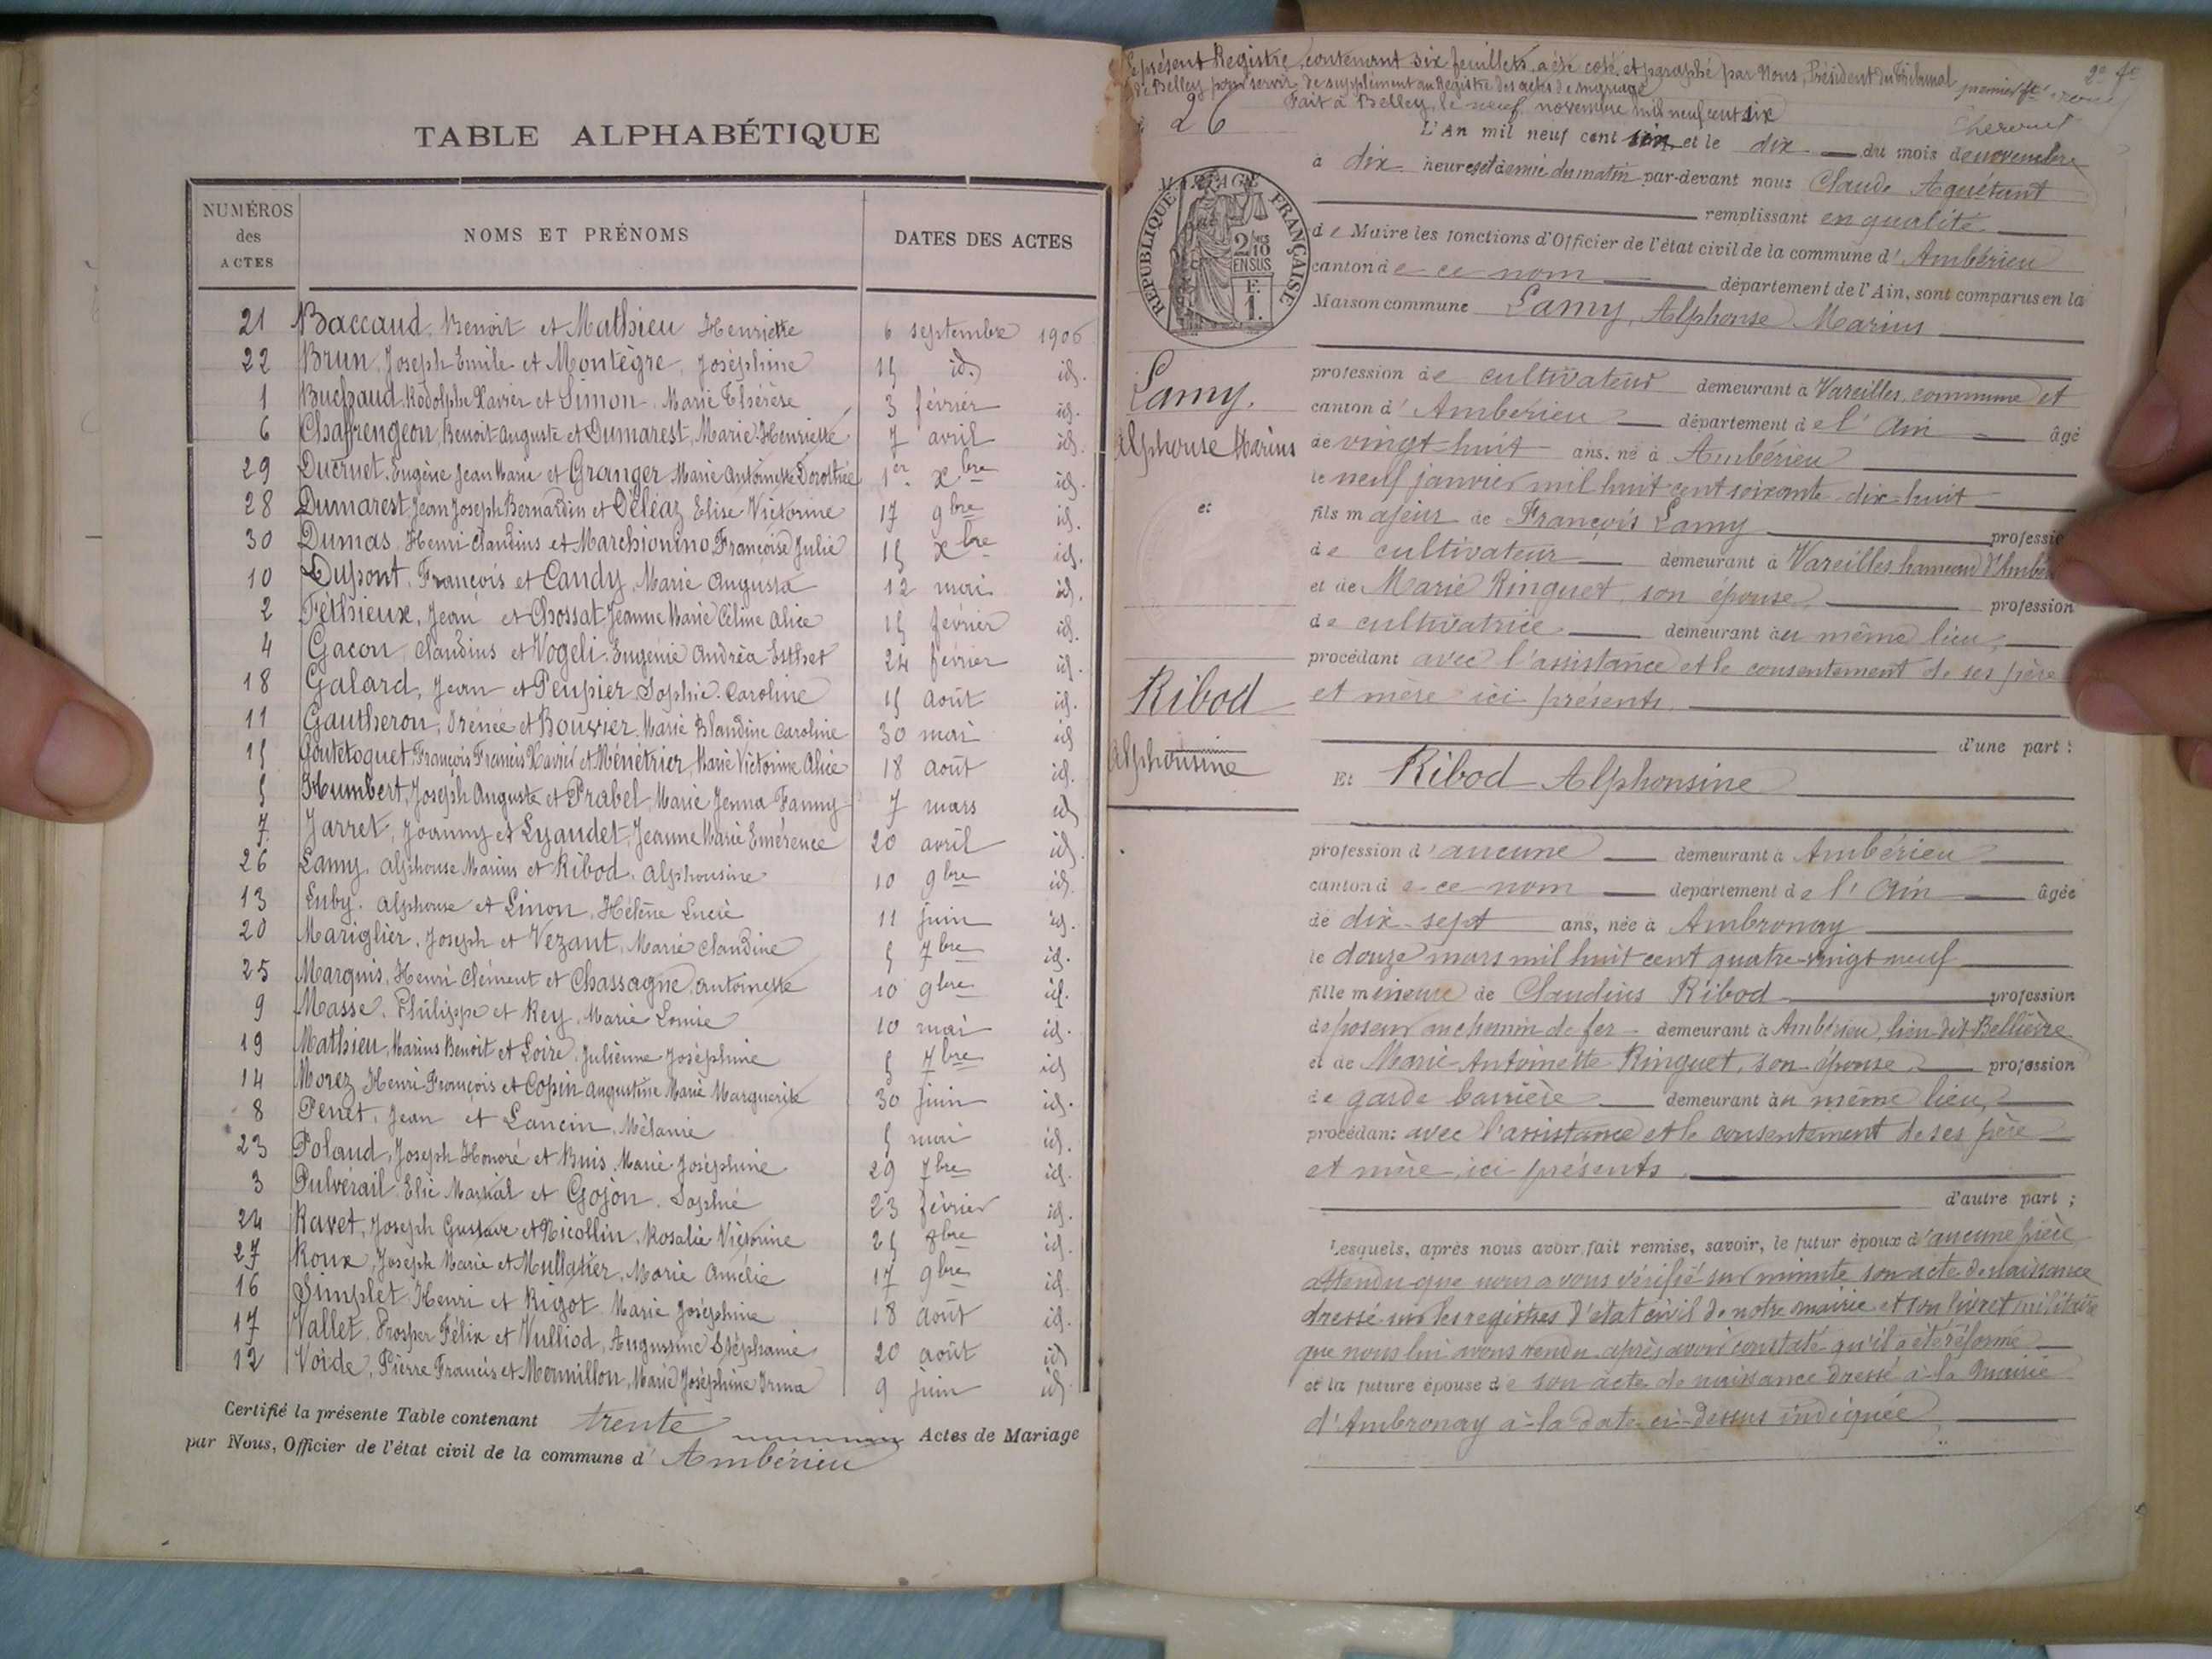 TABLE ALPHABÉTIQUE
NUMÉROS des ACTES
NOMS ET PRÉNOMS
DATES DES ACTES
21 Baccaud, Benoit et Mathieu Henriette 6 septembre 1906
22 Brun, Joseph Emile et Montègre, Joséphine 15 id. id.
1 Buchaud Rodolphe Xavier et Simon, Marie Thérèse 3 février id.
6 Chaffrengeon, Benoit Auguste et Dumarest, Marie Henriette 7 avril id.
29 Ducruet, Eugène Jean Marie et Granger Marie Antoinette Dorothée 1er xbre id.
28 Dumarest Jean Joseph Bernardin et Déléaz Elise Victorine 17 9bre id.
30 Dumas, Henri Claudius et Marchionino Françoise Julie 15 xbre id.
10 Dupont, François et Candy, Marie Augusta 12 mai id.
2 Féthieux, Jean et Chossat Jeanne Marie Céline Alice 15 février id.
4 Gacon, Claudius et Vogeli, Eugénie Andréa Esther 24 février id.
18 Galard, Jean et Peupier Sophie Caroline 15 août id.
11 Gautheron, Irénée et Bouvier, Marie Blandine Caroline 30 mai id
15 Goutetoquet, François Francis Xavier et Ménétrier, Marie Victorine Alice 18 août id.
5 Humbert, Joseph Auguste et Prabel, Marie Jenna Fanny 7 mars id
7 Jarret, Joanny et Lyaudet, Jeanne Marie Emérence 20 avril id.
26 Lamy, Alphonse Marius et Ribod, Alphonsine 10 9bre id.
13 Luby, Alphonse et Linon, Hélène Lucie 11 juin id.
20 Mariglier, Joseph et Vezant, Marie Claudine 5 7bre id.
25 Marquis, Henri Clément et Chassagne, Antoinette 10 9bre id.
9 Masse, Philippe et Rey, Marie Louise 10 mai id.
19 Mathieu, Marius Benoit et Loire, Julienne Joséphine 5 7bre id
14 Morez Henri François et Copin Augustine Marie Marguerite 30 juin id.
8 Penet, Jean et Lancin, Mélanie 5 mai id.
23 Poland, Joseph Honoré et Buis, Marie Joséphine 29 7bre id.
3 Pulvérail, Elie Martial et Gojon, Sophie 23 février id.
24 Ravet, Joseph Gustave et Nicollin, Rosalie Victorine 25 8bre id.
27 Roux, Joseph Marie et Mullatier, Marie Amélie 17 9bre id.
16 Simplet, Henri et Rigot Marie Joséphine 18 août id.
17 Vallet, Prosper Félix et Vulliod, Augustine Stéphanie 20 août id
12 Voide, Pierre Francis et Mounillon, Marie Joséphine Irma 9 juin id.
Certifié la présente Table contenant trente Actes de Mariage
par Nous, Officier de l'état civil de la commune d'Ambérieu
Le présent Registre, contenant six feuillets a été coté et paraphé par Nous, Président du Tribunal premier ft 2e ft
de Belley pour servir de supplément au Registre des actes de mariage
Fait à Belley, le neuf novembre mil neuf cent six
26
L'An mil neuf cent six et le dix du mois de novembre
à dix heures et demie du matin par-devant nous Claude Aguétant
remplissant en qualité
de Maire les fonctions d'Officier de l'état civil de la commune d'Ambérieu
canton de ce nom département de l'Ain, sont comparus en la
Maison commune Lamy, Alphonse Marius
MARIAGE
RÉPUBLIQUE FRANÇAISE
2/10 EN SUS
F. 1.
Lamy,
Alphonse Marius
et
Ribod
Alphonsine
profession de cultivateur demeurant à Vareilles, commune et
canton d'Ambérieu département de l'Ain âgé
de vingt-huit ans, né à Ambérieu
le neuf janvier mil huit cent soixante-dix-huit
fils majeur de François Lamy professio
de cultivateur demeurant à Vareilles hameau d'Ambé
et de Marie Ringuet, son épouse, profession
de cultivatrice demeurant au même lieu,
procédant avec l'assistance et le consentement de ses père
et mère ici présents
d'une part :
Et Ribod Alphonsine
profession d'aucune demeurant à Ambérieu
canton de ce nom département de l'Ain âgée
de dix-sept ans, née à Ambronay
le douze mars mil huit cent quatre-vingt-neuf
fille mineure de Claudius Ribod profession
de poseur au chemin de fer demeurant à Ambérieu, lieu dit Bellièvre
et de Marie-Antoinette Ringuet, son épouse profession
de garde barrière demeurant au même lieu,
procédant avec l'assistance et le consentement de ses père
et mère, ici présents
d'autre part ;
Lesquels, après nous avoir fait remise, savoir, le futur époux d'aucune pièce
attendu que nous avons vérifié sur minute son acte de naissance
dressé sur les registres d'état civil de notre mairie et son livret militaire
que nous lui avons rendu après avoir constaté qu'il a été réformé
et la future épouse de son acte de naissance dressé à la Mairie
d'Ambronay à la date ci-dessus indiquée